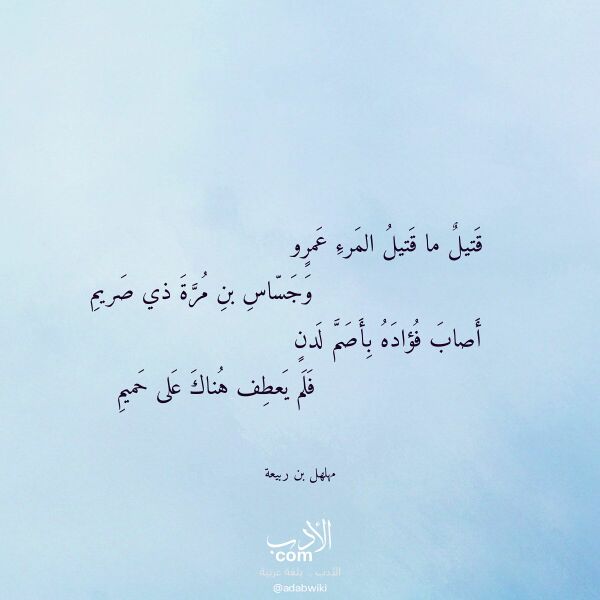 قَتيلٌ ما قَتيلُ المَرءِ عَمرٍو
وَجَسّاسِ بنِ مُرَّةَ ذي صَريمِ
أَصابَ فُؤادَهُ بِأَصَمَّ لَدنٍ
فَلَم يَعطِف هُناكَ عَلى حَميمِ
مهلهل بن ربيعة
الأدب
com
الأدب .. بلغة عربية
@adabwiki